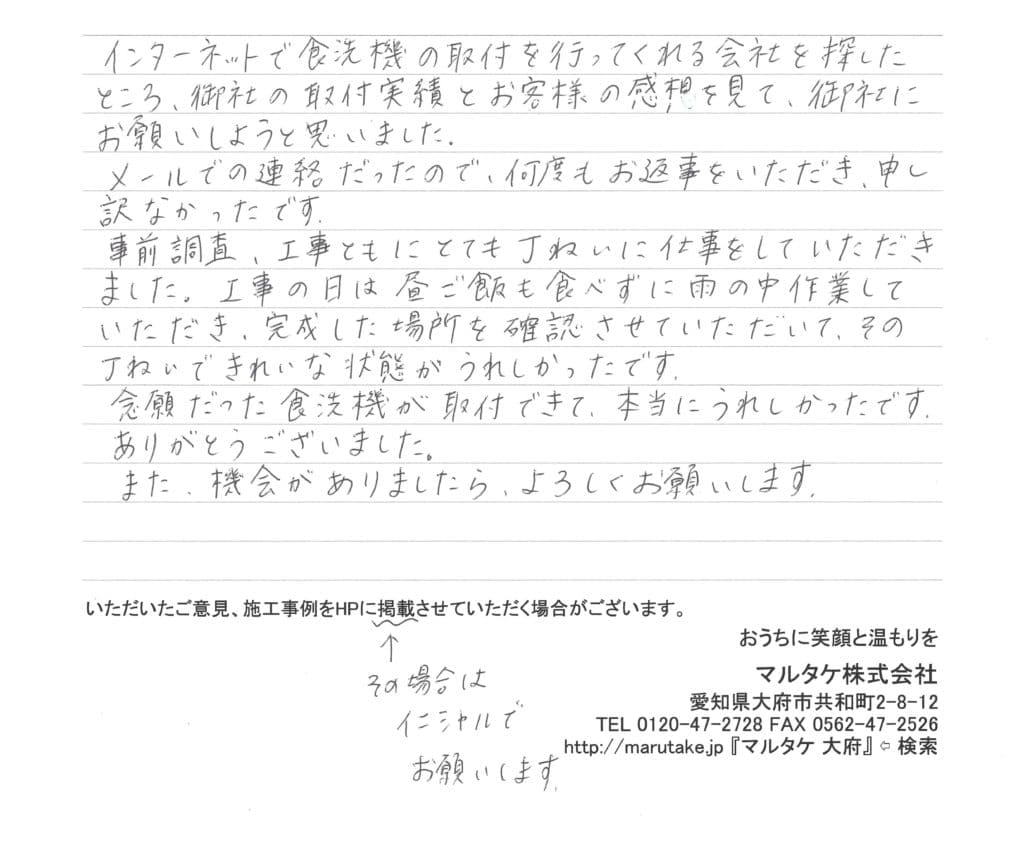 インターネットで食洗機の取付を行ってくれる会社を探した
ところ、御社の取付実績とお客様の感想を見て、御社に
お願いしようと思いました。
メールでの連絡だったので、何度もお返事をいただき、申し
訳なかったです。
事前調査、工事ともにとても丁ねいに仕事をしていただき
ました。工事の日は昼ご飯も食べずに雨の中作業して
いただき、完成した場所を確認させていただいて、その
丁ねいできれいな状態がうれしかったです。
念願だった食洗機が取付できて、本当にうれしかったです。
ありがとうございました。
また、機会がありましたら、よろしくお願いします。
いただいたご意見、施工事例をHPに掲載させていただく場合がございます。
↑
その場合は
イニシャルで
お願いします。
おうちに笑顔と温もりを
マルタケ株式会社
愛知県大府市共和町2-8-12
TEL 0120-47-2728 FAX 0562-47-2526
http://marutake.jp『マルタケ 大府』⇦ 検索